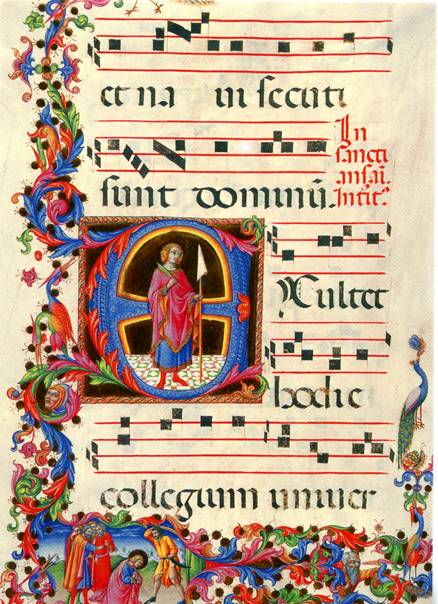 et na in secuti
sunt dominū.
In
sancti
ansāi.
EXultet
hodie
collegium univer